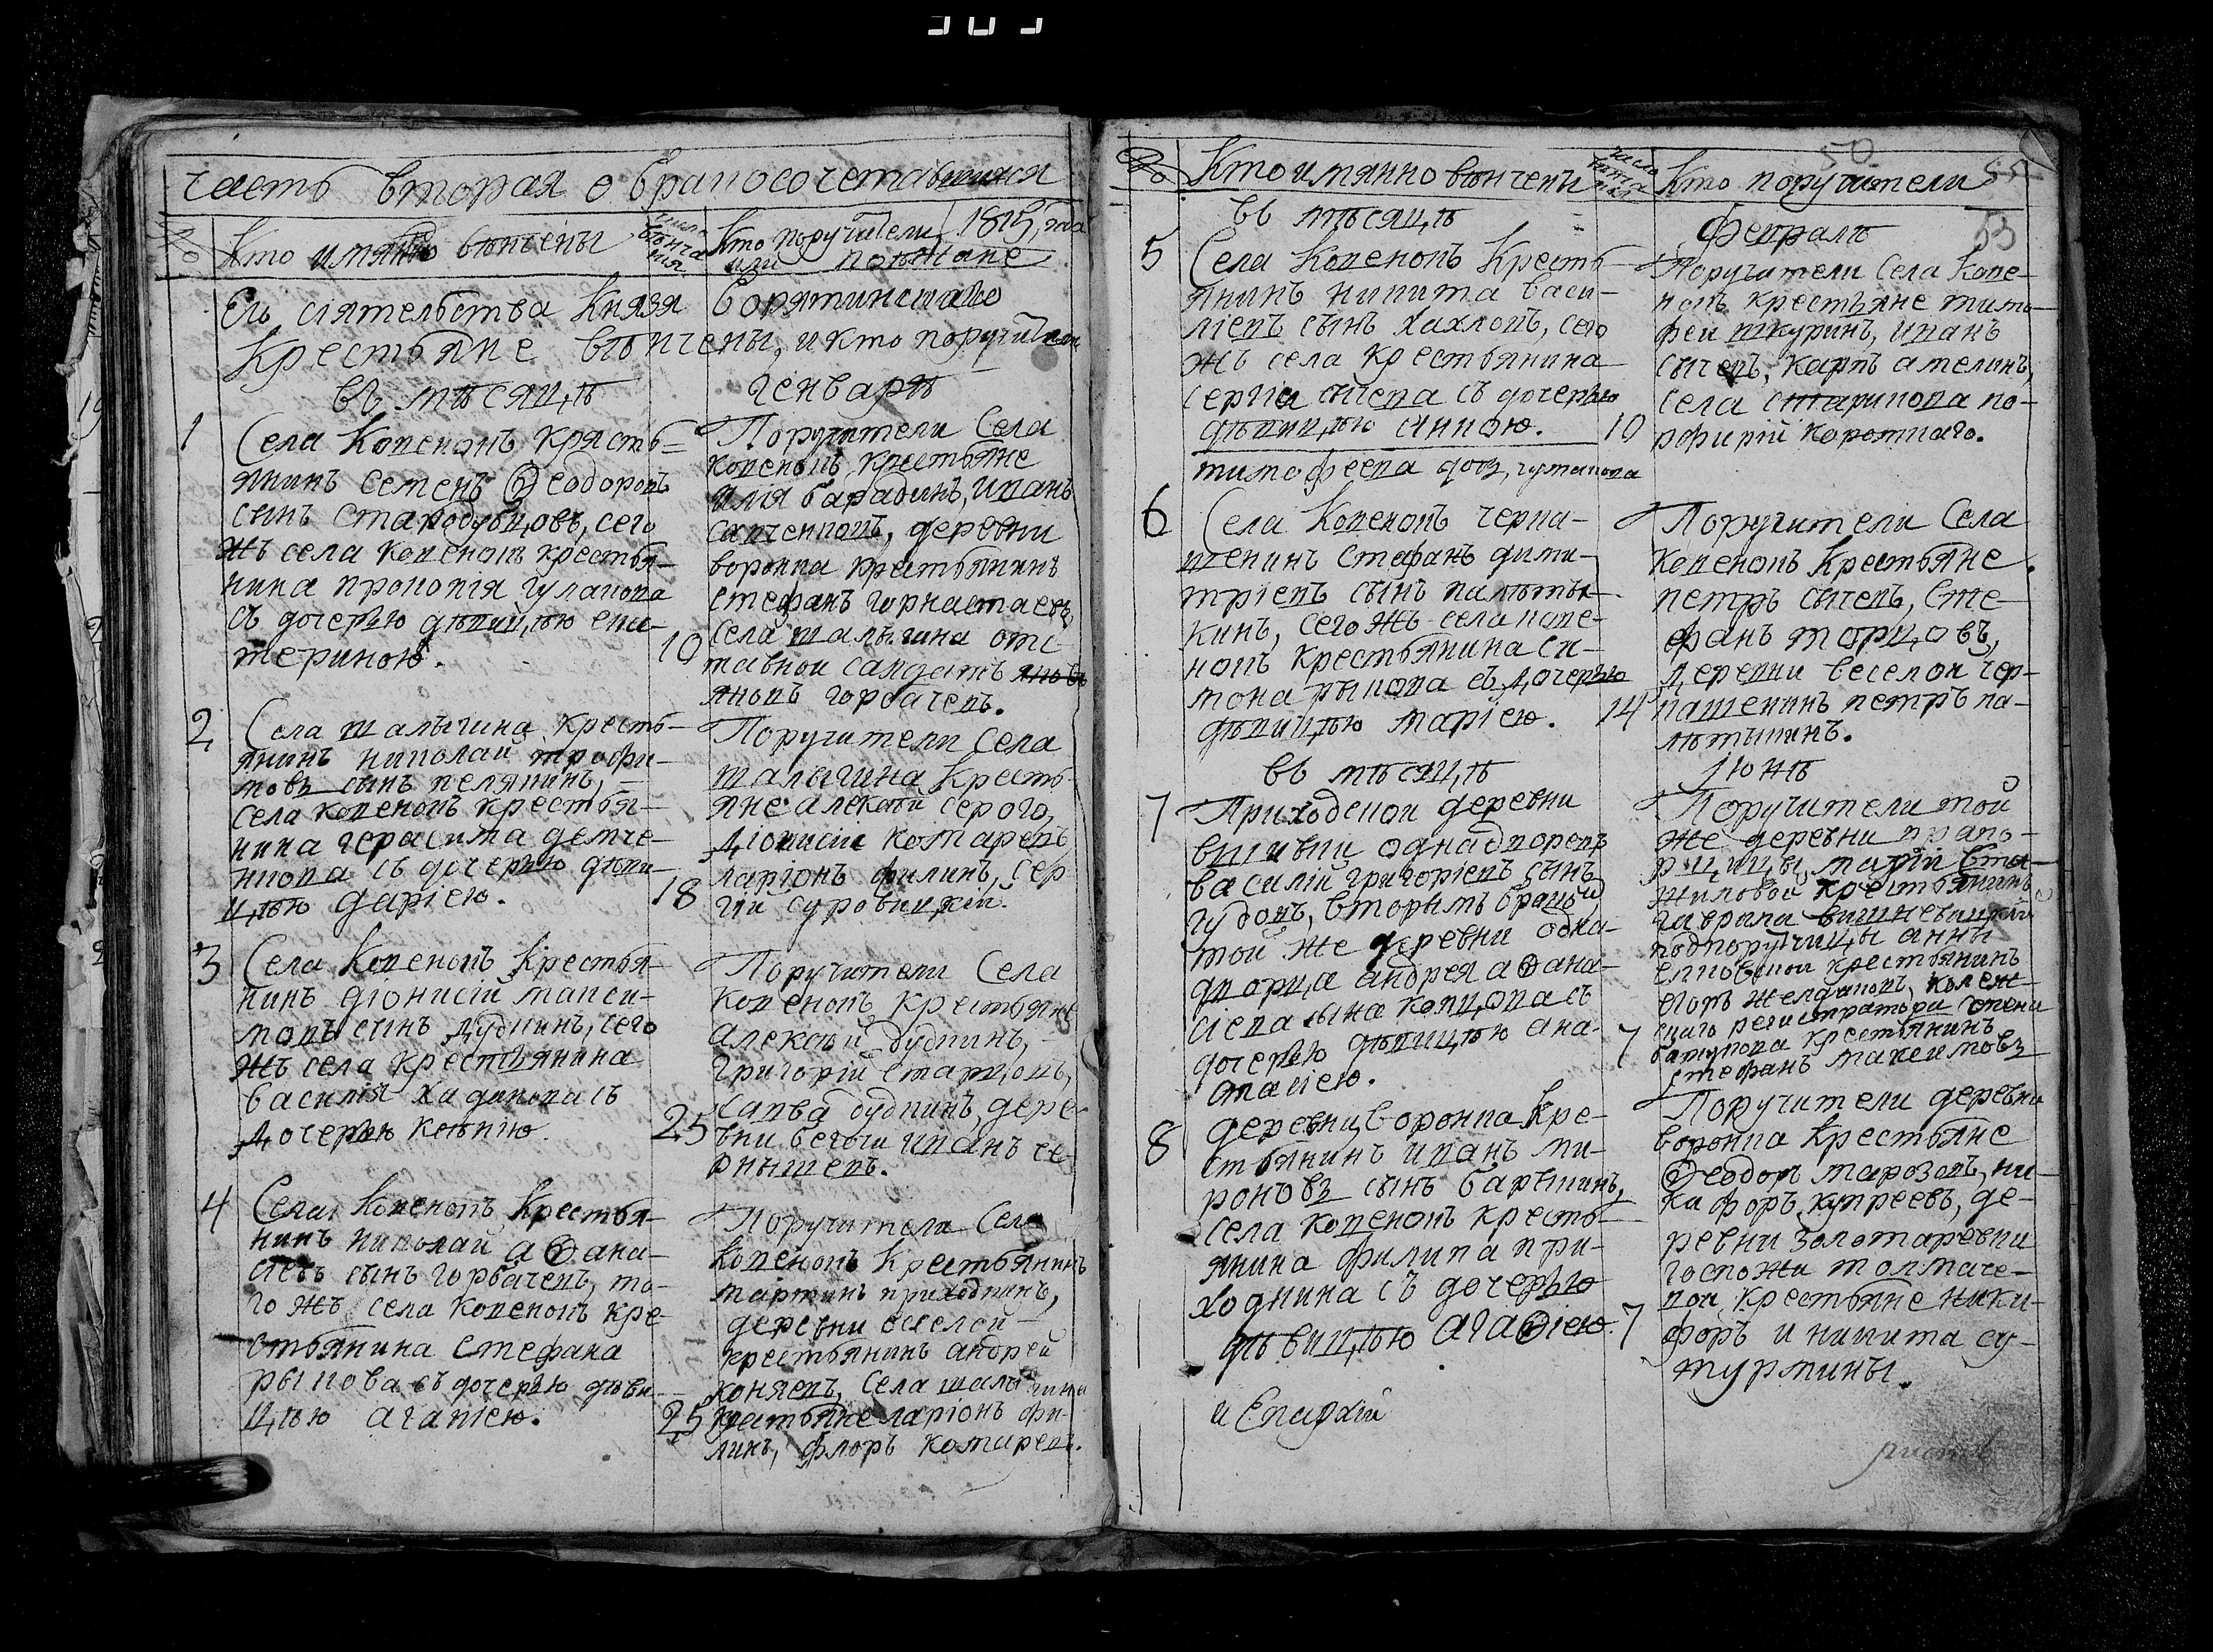 часть вторая о бракосочетавшихся
№
Кто имянно венчены
число венча ния
Кто поручители 1815, года
или поезжане
Его сіятельства Князя Борятинскаго
Крестьяне венчены, и кто поручители
въ месяце генваре
1
Села Копенокъ крясть-
янинъ Семенъ Ѳеодоровъ
сынъ Стародубцовъ, сего
жъ села Копенокъ крестья-
нина Прокопія Гулакова
съ дочерью девицею Ека-
териною.
10
Поручители Села
Копенокъ крестьяне
Илія Барадинъ, Иванъ
Савченковъ, деревни
воронка крестьянинъ
Стефанъ Горнастаевъ
Села Шалыгина отс
тавной салдатъ
Яковъ Горбачевъ.
2
Села Шалыгина кресть-
янинъ Николай Трофи-
мовъ сынъ Пелякинъ,
села Копенокъ крестья-
нина Герасима Демче-
нкова съ дочерью деви-
цею Даріею.
18
Поручители Села
Шалыгина Кресть-
яне Алексѣй Серого,
Діонисій Комаревъ
Ларіонъ Филинъ, Сер
гій Суровицкій.
3
Села Копенокъ Крестья-
нинъ Діонисій Макси-
мовъ сынъ Дудкинъ, сего
жъ села крестьянина
Василія Хадикова съ
дочерью Ксеніею
25
Поручители Села
Копенокъ крестьяне
Алексѣй Дудкинъ,
Григорій Старцовъ,
Савва Дудкинъ, дере-
вни бегочи Иванъ Че-
рнышевъ.
4
Села Копенокъ Крестья-
нинъ Николай Аѳана-
сіевъ сынъ Горбачевъ, то-
го жъ села Копенокъ кре-
стьянина Стефана
Рыкова съ дочерью деви-
цею Агапіею.
25
Поручители Села
Копенокъ Крестьянинъ
Мартинъ Приходкинъ,
деревни веселой
крестьянинъ Андрей
Коняевъ, Села Шалыгина
крестьяне Ларіонъ Фи-
линъ, Флоръ Комаревъ.
50
55
53
№
Кто имянно венчены
число венча ния
Кто поручители
въ месяце Феврале
5
Села Копенокъ Кресть-
янинъ Никита Васи-
ліевъ сынъ Хахловъ, сего
жъ села Крестьянина
Сергіа Сычева съ дочерью
девицею Анною.
10
Тимофеева
Поручители Села Копе-
нокъ крестьяне Тимо-
фей Шкуринъ, Иванъ
Сычевъ, Карпъ Амелинъ,
Села Старикова По-
рфирій Короткаго.
6
Села Копенокъ черна-
шенинъ Стефанъ Дими-
тріевъ сынъ Палеты-
кинъ, сего жъ села Копе-
нокъ крестьянина Си-
мона Рыкова съ дочерью
девицею Маріею.
14
Поручители Села
Копенокъ Крестьяне
Петръ Сычевъ, Сте-
фанъ Торцовъ,
Деревни веселой чер-
нашенинъ Петръ Па-
летыкинъ.
въ месяце Іюне
7
Приходской деревни
вишневки однадворецъ
Василій Григоріевъ сынъ
Гудовъ, вторымъ бракомъ
той же деревни одна-
дворца Андрея Аѳана-
сіева сына Копцова съ
дочерью девицею Ана-
стасіею.
7
Поручители той
же деревни прапо-
рщицы Маріи Ста-
жиловой крестьянинъ
Гаврила Вишневицкій
подпорутчицы Анны
крестьянинъ
Егоръ колеж-
скаго регистратора
крестьянинъ
Стефанъ Максимовъ
8
деревни воронка Кре-
стьянинъ Иванъ Ми-
роновъ сынъ Барышинъ,
села Копенокъ кресть-
янина Филипа При-
ходкина съ дочерью
девицею Агаѳіею.
7
Поручители деревни
воронка Крестьяне
Ѳеодоръ Марозовъ, Ни-
кифоръ Купреевъ, де-
ревни Золотаревки
госпожи Толмаче-
вой крестьяне Ники-
форъ и Никита Су-
турмины.
и Епархіи